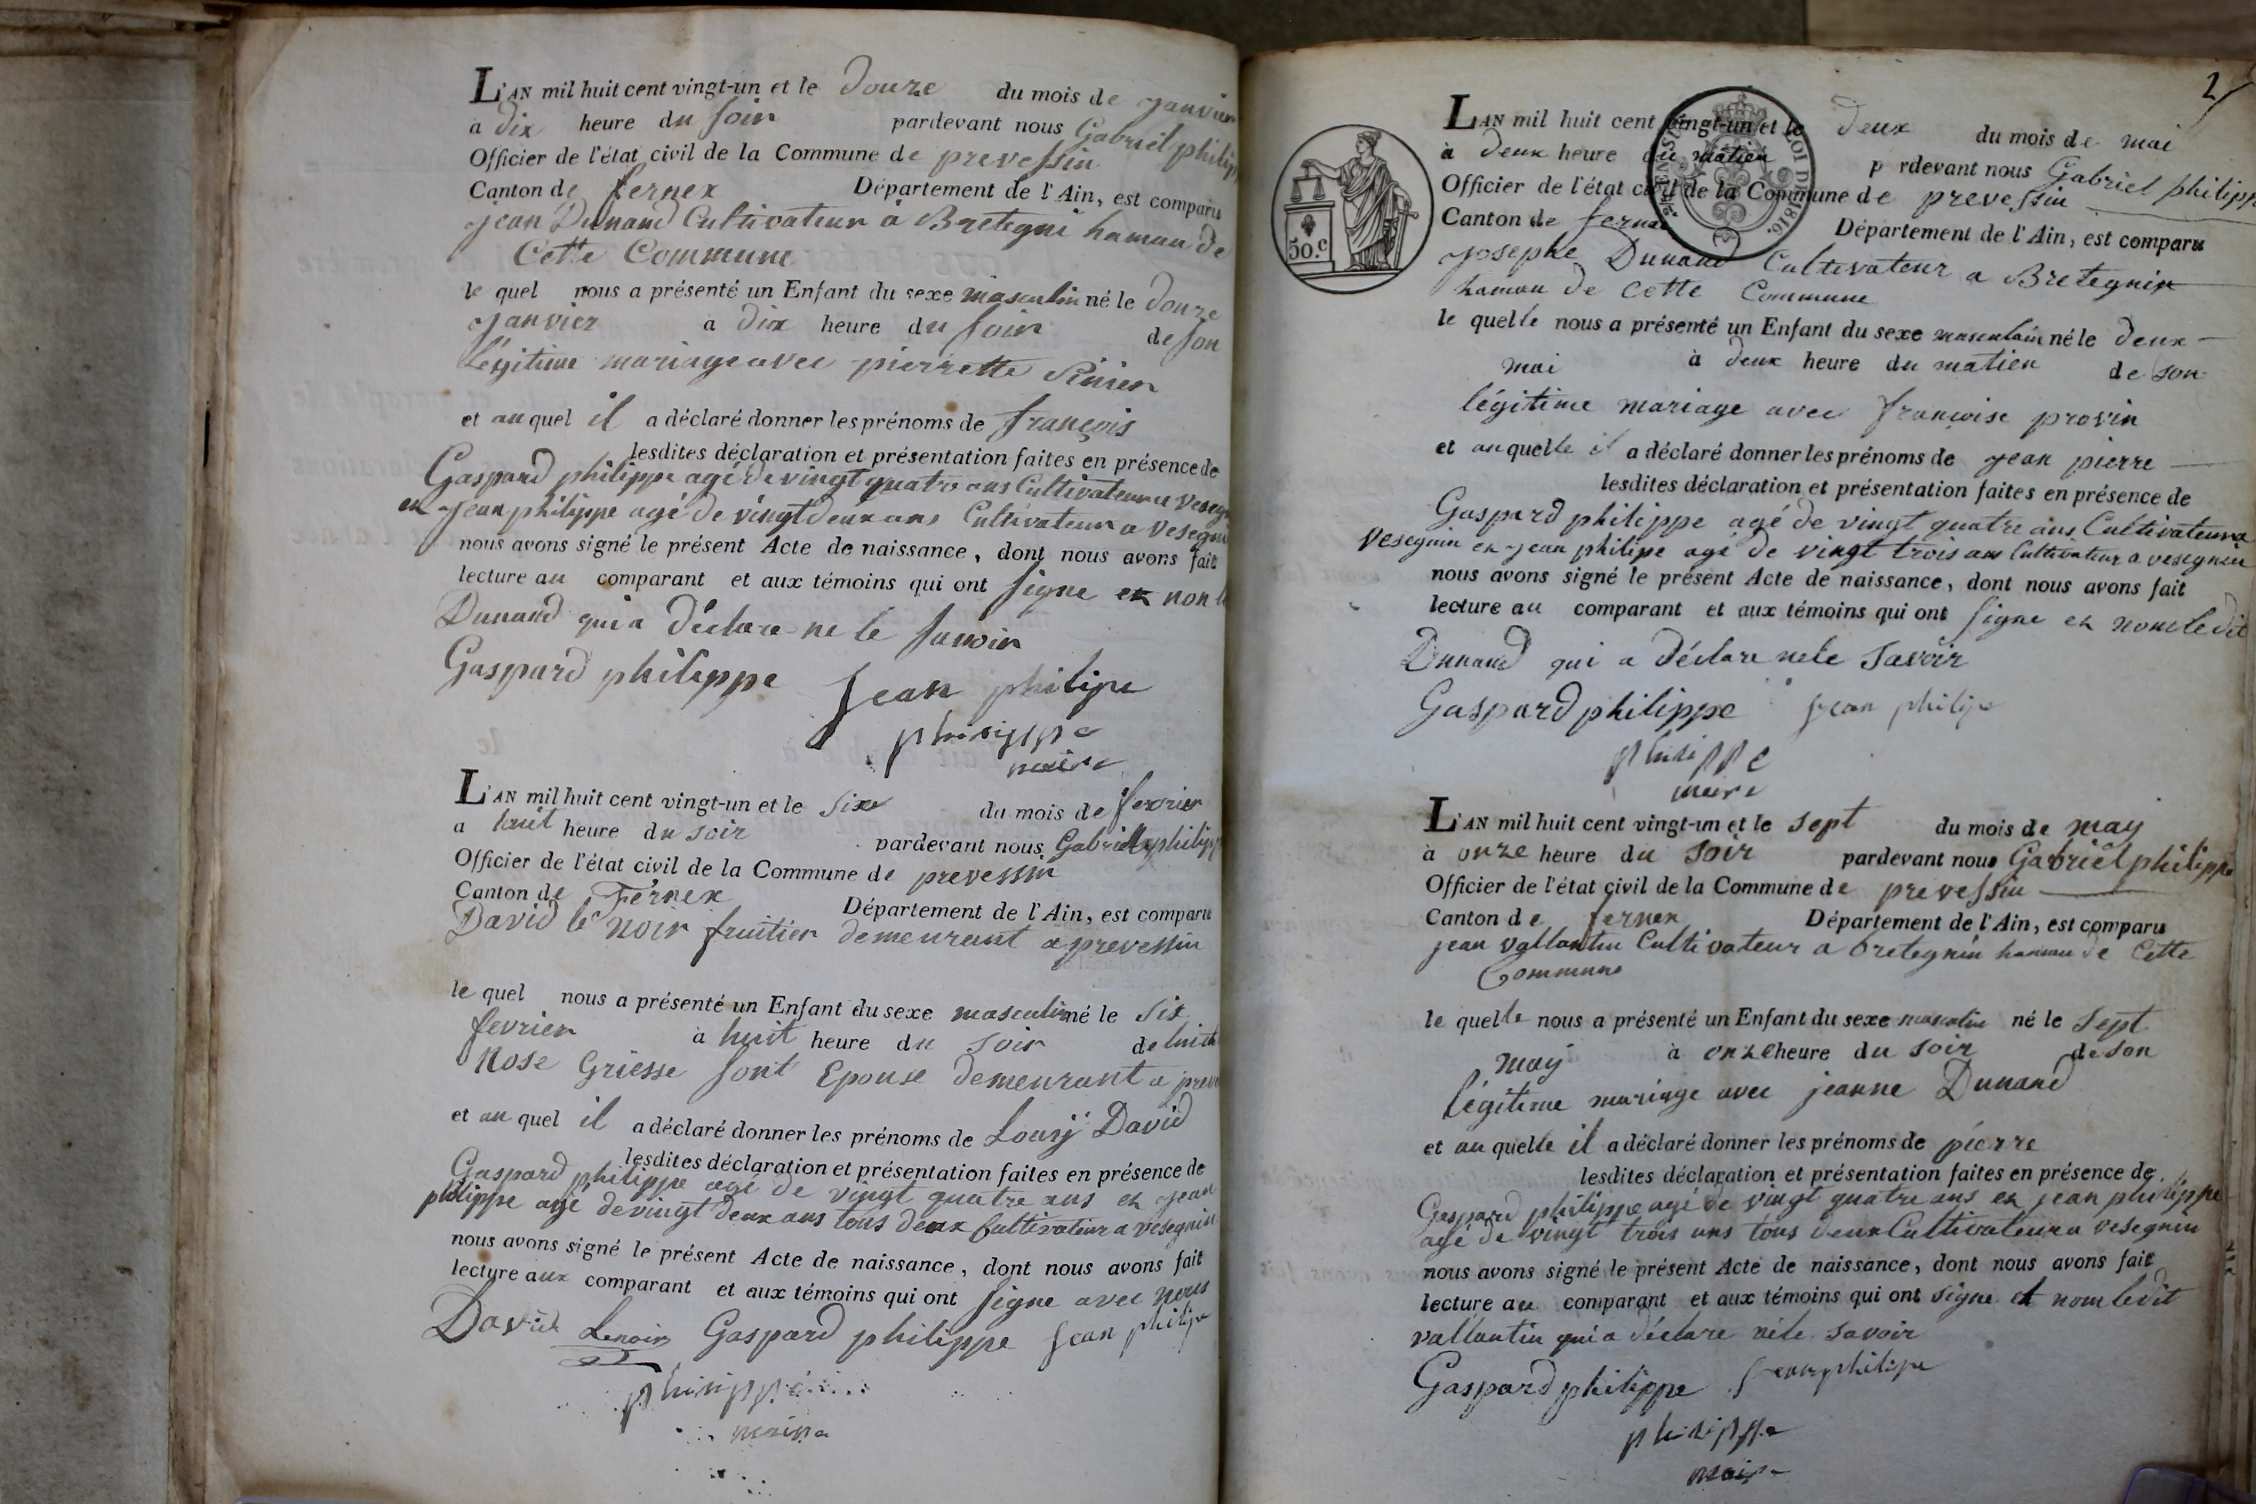 L'AN mil huit cent vingt-un et le douze du mois de janvier
a dix heure du soir pardevant nous Gabriel philipp
Officier de l'état civil de la Commune de prevessin
Canton de fernex Département de l'Ain, est comparu
jean Dunand Cultivateur à Bretegni hamau de
Cette Commune
le quel nous a présenté un Enfant du sexe masculin né le douze
janvier a dix heure du soir de son
légitime mariage avec pierrette
et au quel il a déclaré donner les prénoms de françois
lesdites déclaration et présentation faites en présence de
Gaspard philippe agé de vingt quatre ans Cultivateur a Vesegn
et jean philippe agé de vingt deux ans Cultivateur a Vesegnin
nous avons signé le présent Acte de naissance, dont nous avons fait
lecture au comparant et aux témoins qui ont signe et non le
Dunand qui a déclare ne le savoir
Gaspard philippe jean philipe
philippe
maire
L'AN mil huit cent vingt-un et le six du mois de fevrier
a huit heure du soir pardevant nous Gabriel philipp
Officier de l'état civil de la Commune de prevessin
Canton de Fernex Département de l'Ain, est comparu
David le noir fruitier demeurant a prevessin
le quel nous a présenté un Enfant du sexe masculin né le six
fevrier à huit heure du soir de
Rose Griesse sont Epouse demeurant a prev
et au quel il a déclaré donner les prénoms de Louij David
lesdites déclaration et présentation faites en présence de
Gaspard philippe agé de vingt quatre ans et jean
philippe agé de vingt deux ans tous deux Cultivateur a vesegnin
nous avons signé le présent Acte de naissance, dont nous avons fait
lecture aux comparant et aux témoins qui ont signe avec nous
David Lenoir Gaspard philippe jean philipe
philippe
maire
2
50.c
L'AN mil huit cent vingt-un et le deux du mois de mai
à deux heure du matien p rdevant nous Gabriel philippe
Officier de l'état civil de la Commune de prevessin
Canton de fernex Département de l'Ain, est comparu
josephe Dunand Cultivateur a Bretegnin
hamau de cette Commune
le quelle nous a présenté un Enfant du sexe masculain né le deux
mai à deux heure du matien de son
légitime mariage avec françoise provin
et au quelle il a déclaré donner les prénoms de jean pierre
lesdites déclaration et présentation faites en présence de
Gaspard philippe agé de vingt quatre ans Cultivateur a
Vesegnin et jean philipe agé de vingt trois ans Cultivateur a vesegnin
nous avons signé le présent Acte de naissance, dont nous avons fait
lecture au comparant et aux témoins qui ont signe et nom ledit
Dunand qui a déclare ne le savoir
Gaspard philippe jean philipe
philippe
maire
L'AN mil huit cent vingt-un et le sept du mois de may
à onze heure du soir pardevant nous Gabriel philippe
Officier de l'état civil de la Commune de prevessin
Canton de fernex Département de l'Ain, est comparu
jean vallantin Cultivateur a bretegnin hamau de Cette
Commune
le quelle nous a présenté un Enfant du sexe masculin né le sept
may à onze heure du soir de son
légitime mariage avec jeanne Dunand
et au quelle il a déclaré donner les prénoms de pierre
lesdites déclaration et présentation faites en présence de
Gaspard philippe agé de vingt quatre ans et jean philippe
agé de vingt trois ans tous deux Cultivateur a vesegnin
nous avons signé le présent Acte de naissance, dont nous avons fait
lecture au comparant et aux témoins qui ont signe et nom ledit
vallantin qui a déclare ne le savoir
Gaspard philippe jean philipe
philippe
maire